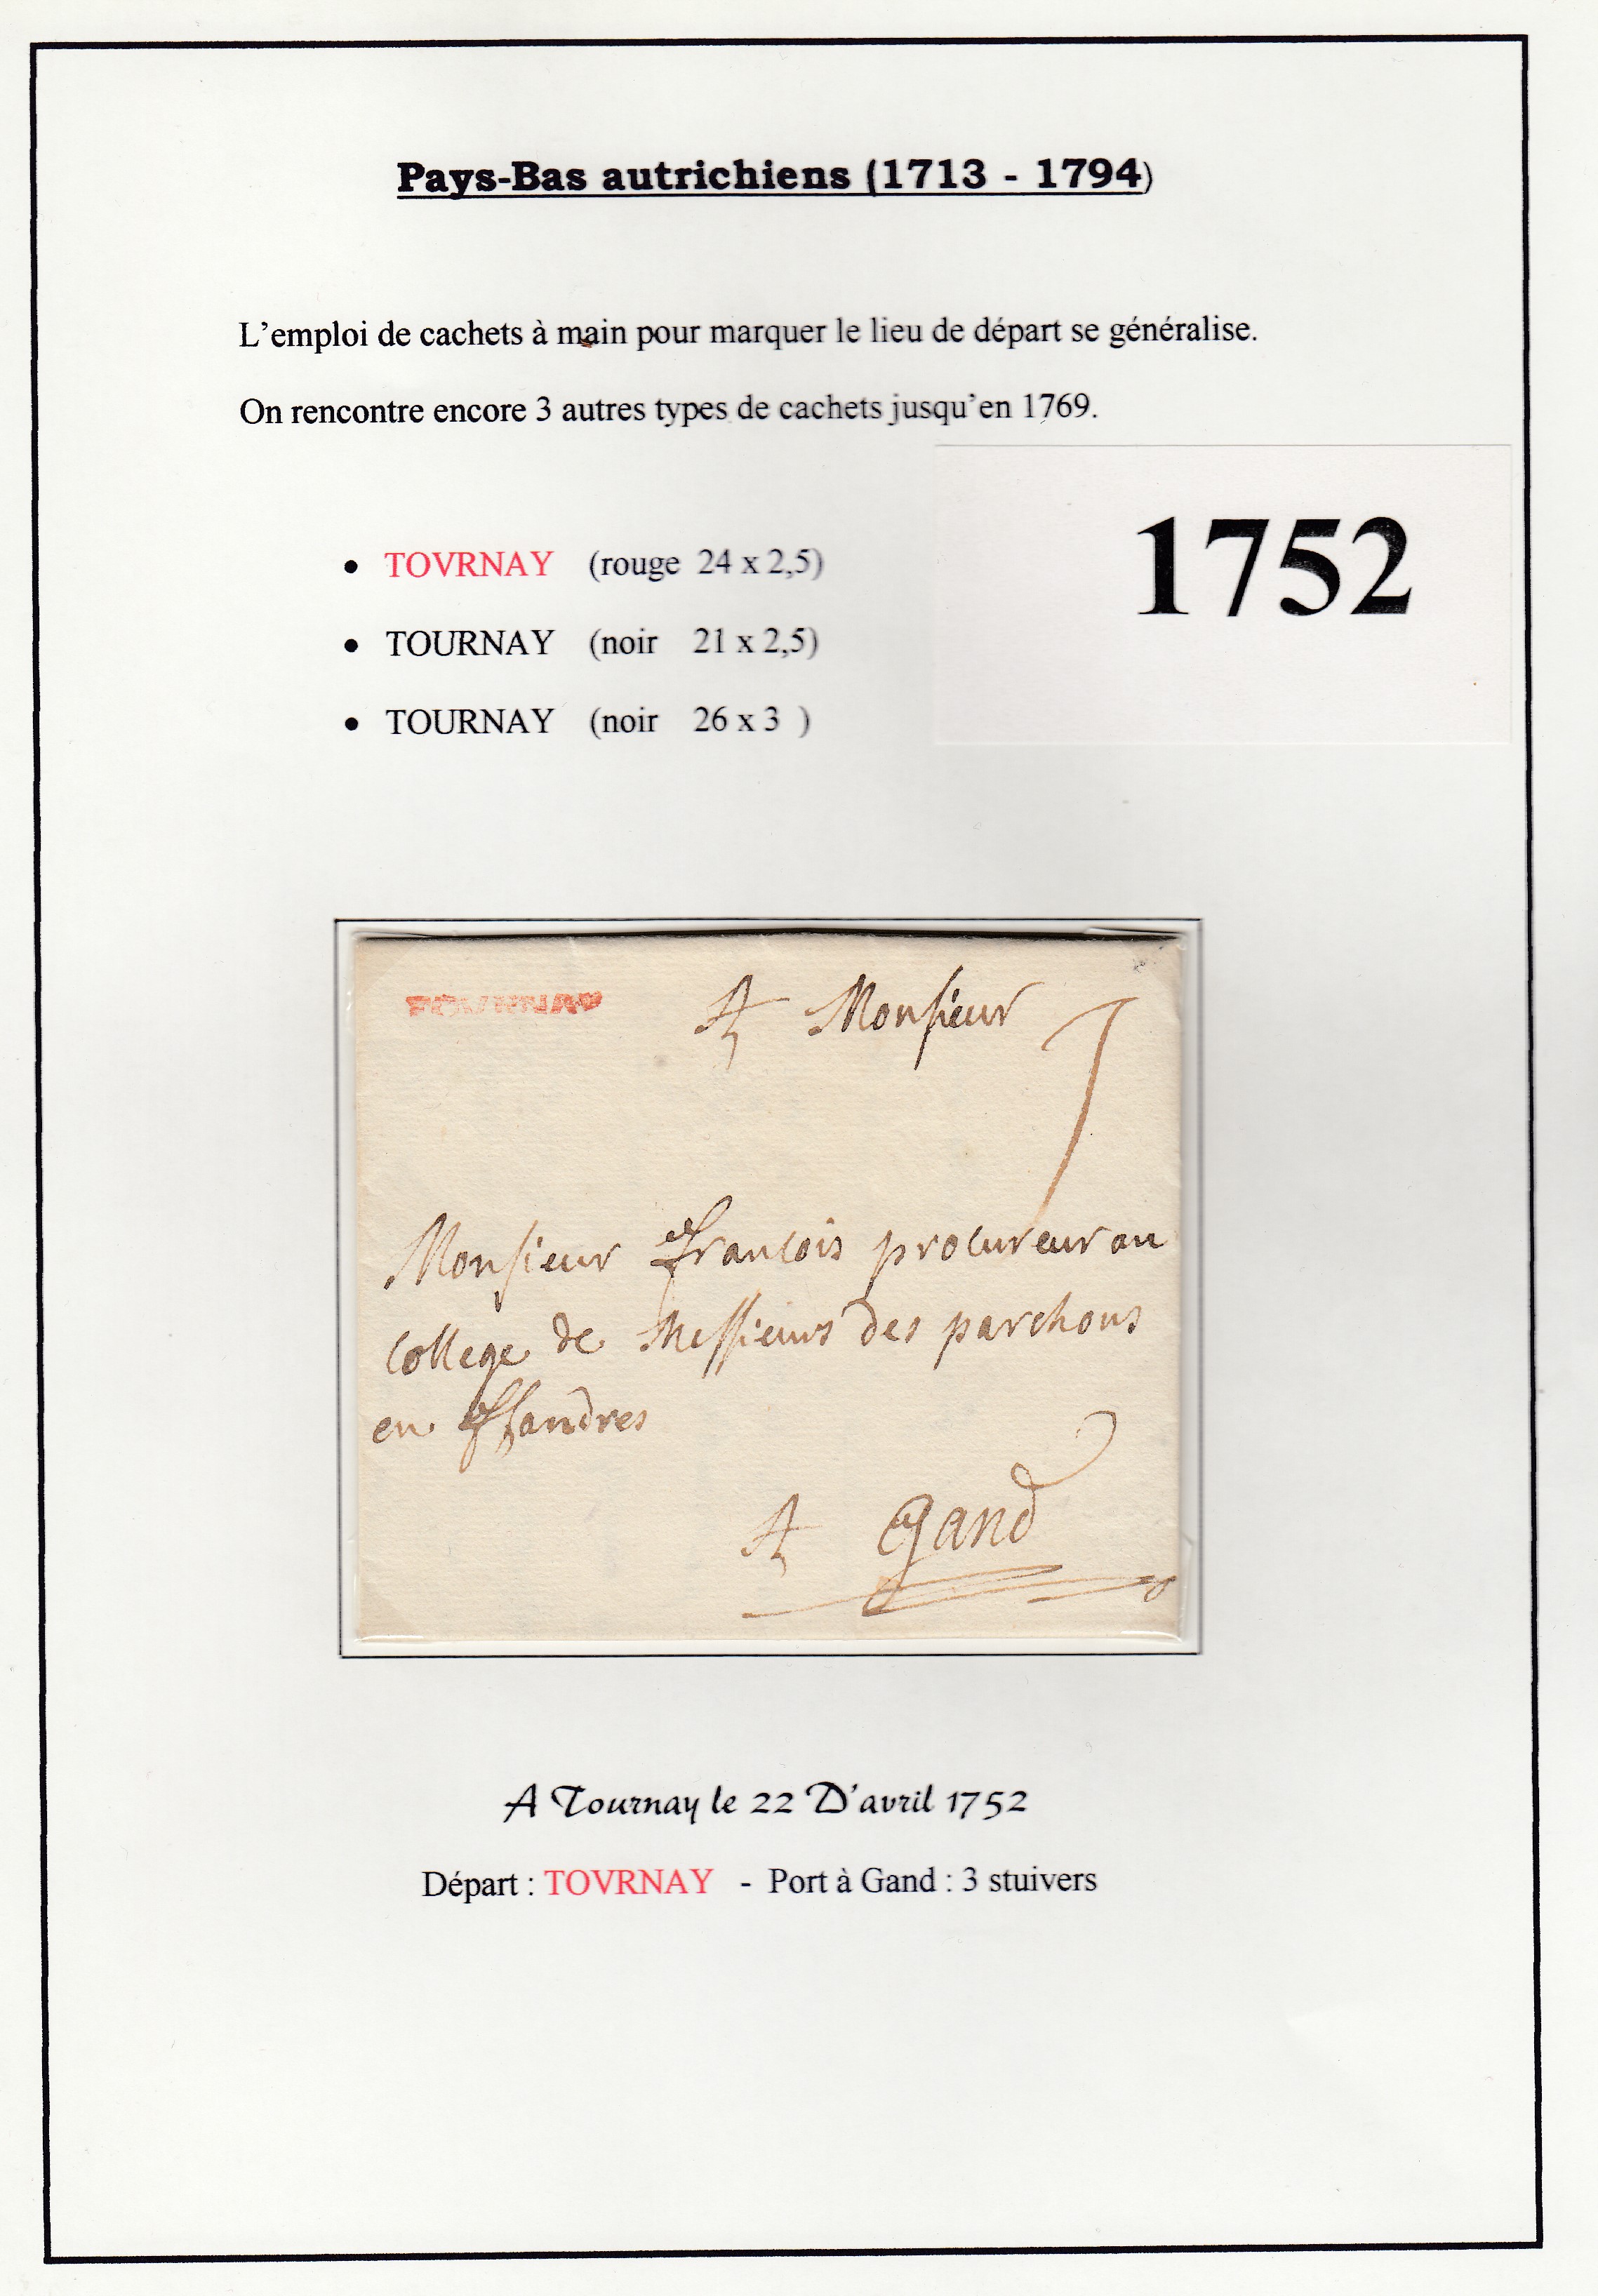 Pays-Bas autrichiens (1713 - 1794)
L'emploi de cachets à main pour marquer le lieu de départ se généralise.
On rencontre encore 3 autres types de cachets jusqu'en 1769.
1752
• TOVRNAY (rouge 24 x 2,5)
• TOURNAY (noir 21 x 2,5)
• TOURNAY (noir 26 x 3 )
TOVRNAY
A Monsieur
Monsieur francois procureur au
College de Messieurs des parchons
en fflandres
A Gand
A Tournay le 22 D'avril 1752
Départ : TOVRNAY - Port à Gand : 3 stuivers